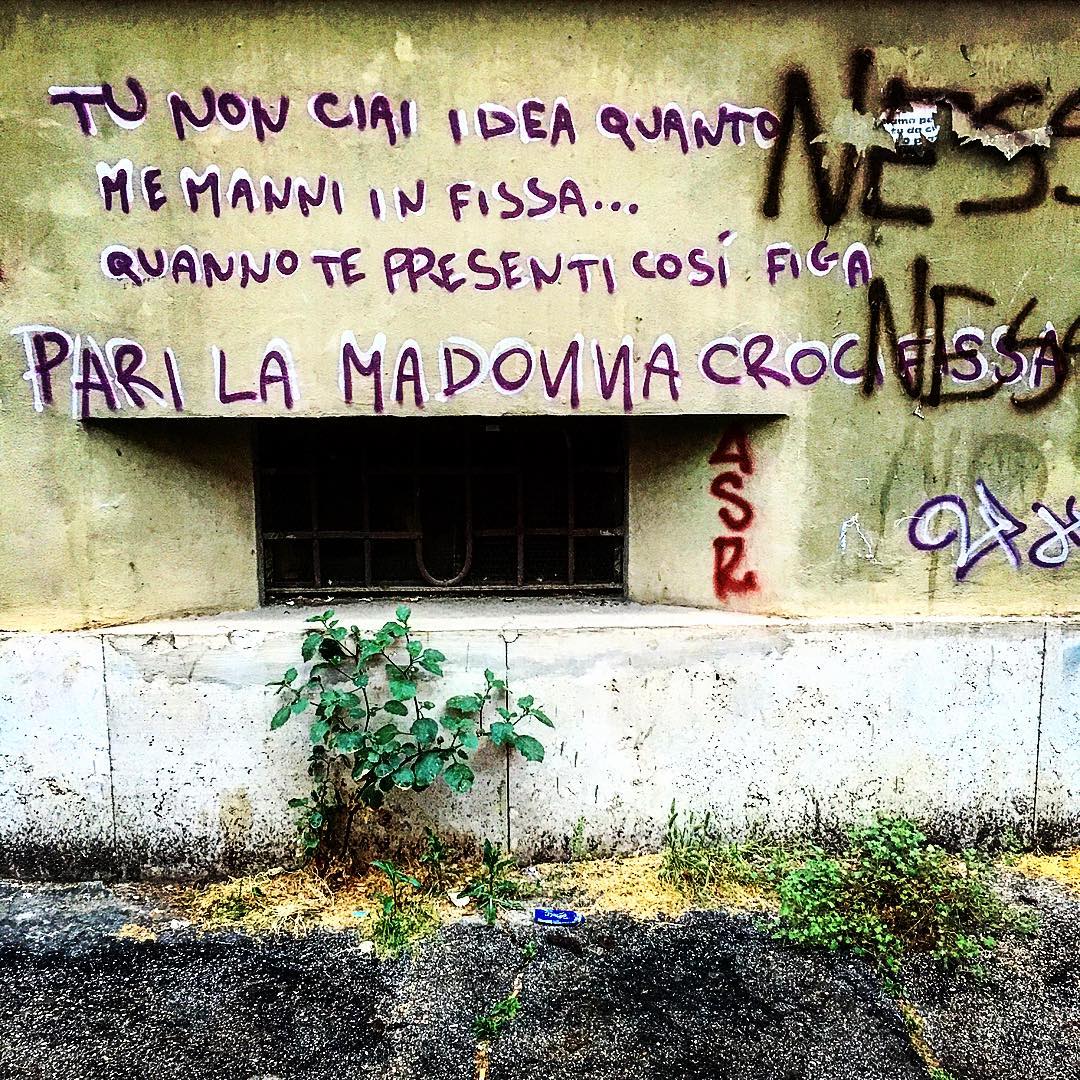 TU NON CIAI IDEA QUANTO
ME MANNI IN FISSA...
QUANNO TE PRESENTI COSÍ FIGA
PARI LA MADONNA CROCIFISSA
NESS
NESS
ASR